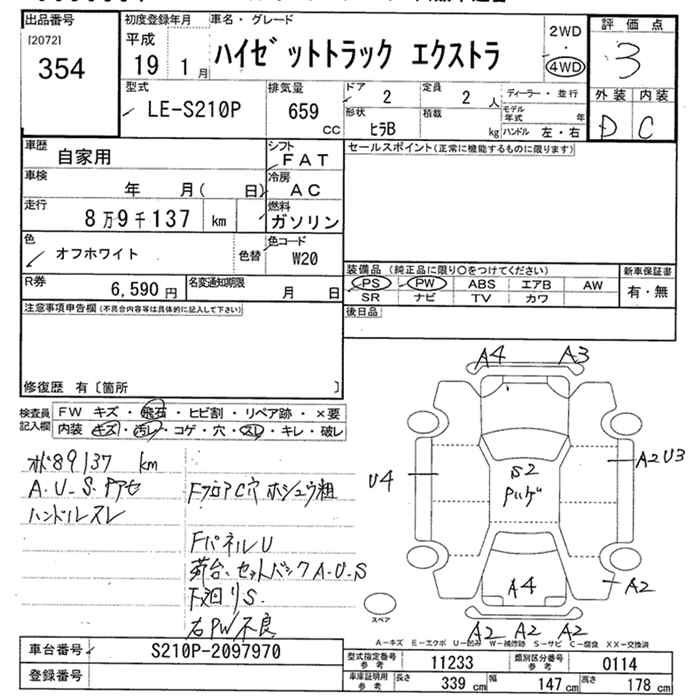 出品番号
[2072]
354
初度登録年月
平成
19 1月
車名・グレード
ハイゼットトラック エクストラ
2WD
・
4WD
評価点
3
外装 内装
D C
型式
LE-S210P
排気量
659
CC
ドア
2
定員
2 人
形状
ヒラB
積載
kg
ディーラー・並行
モデル年式 年
ハンドル 左・右
車歴
自家用
シフト
FAT
セールスポイント(正常に機能するものに限ります)
車検
年 月( 日)
冷房
AC
走行
8万9千137 km
燃料
ガソリン
色
オフホワイト
色替
色コード
W20
R券
6,590円
名変通知期限
月 日
装備品 (純正品に限り○をつけてください)
PS PW ABS エアB AW
SR ナビ TV カワ
新車保証書
有・無
注意事項申告欄(不具合内容等は具体的に記入して下さい)
後日品
修復歴 有〔箇所 〕
検査員記入欄
FW キズ・飛石・ヒビ割・リペア跡・×要
内装・キズ・汚レ・コゲ・穴・スレ・キレ・破レ
メーター89137 km
A.U.S.Pアセ
ハンドルスレ
FフロアC穴 ホシュウ粗
FパネルU
荷台、セットバックA.U.S
下廻りS.
右PW不良
A4 A3
U4
S2
Pハゲ
A2U3
A4
A2
A2 A2 A2
スペア
A-キズ E-エクボ U-凹み W-補修跡 S-サビ C-腐食 XX-交換済
車台番号
S210P-2097970
登録番号
型式指定番号 参考
11233
類別区分番号 参考
0114
車庫証明用 参考
長さ 339 cm 幅 147 cm 高さ 178 cm